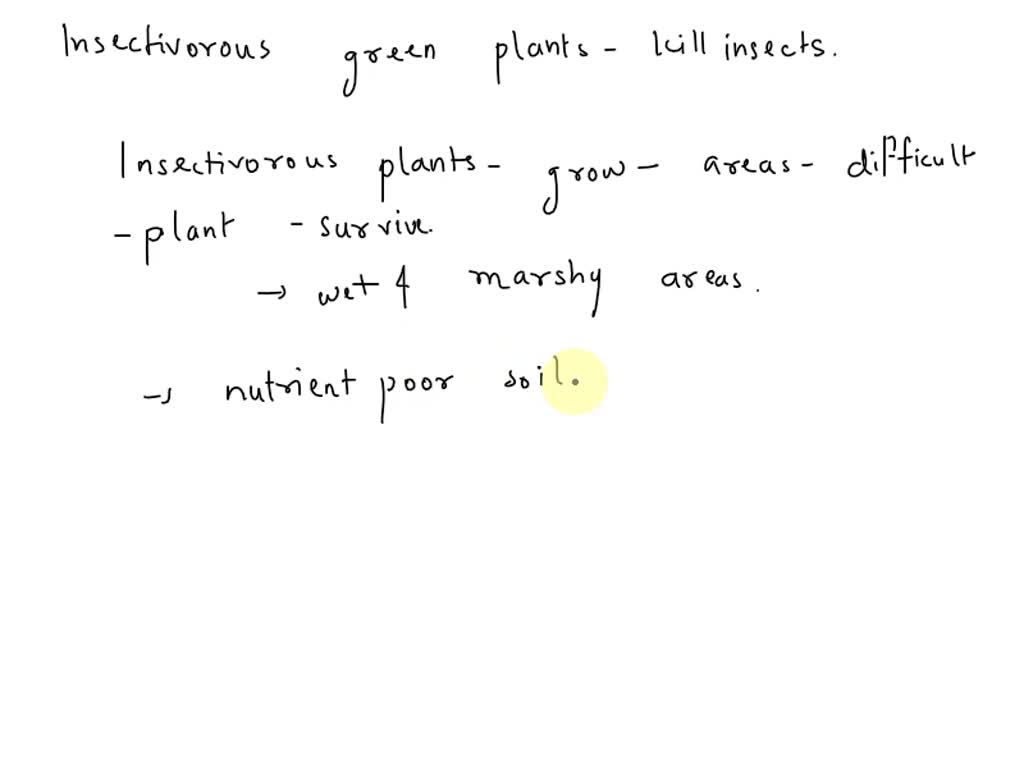 Insectivorous green plants - kill insects.
Insectivorous plants - grow - areas - difficult
- plant - survive.
→ wet & marshy areas.
→ nutrient poor soil.